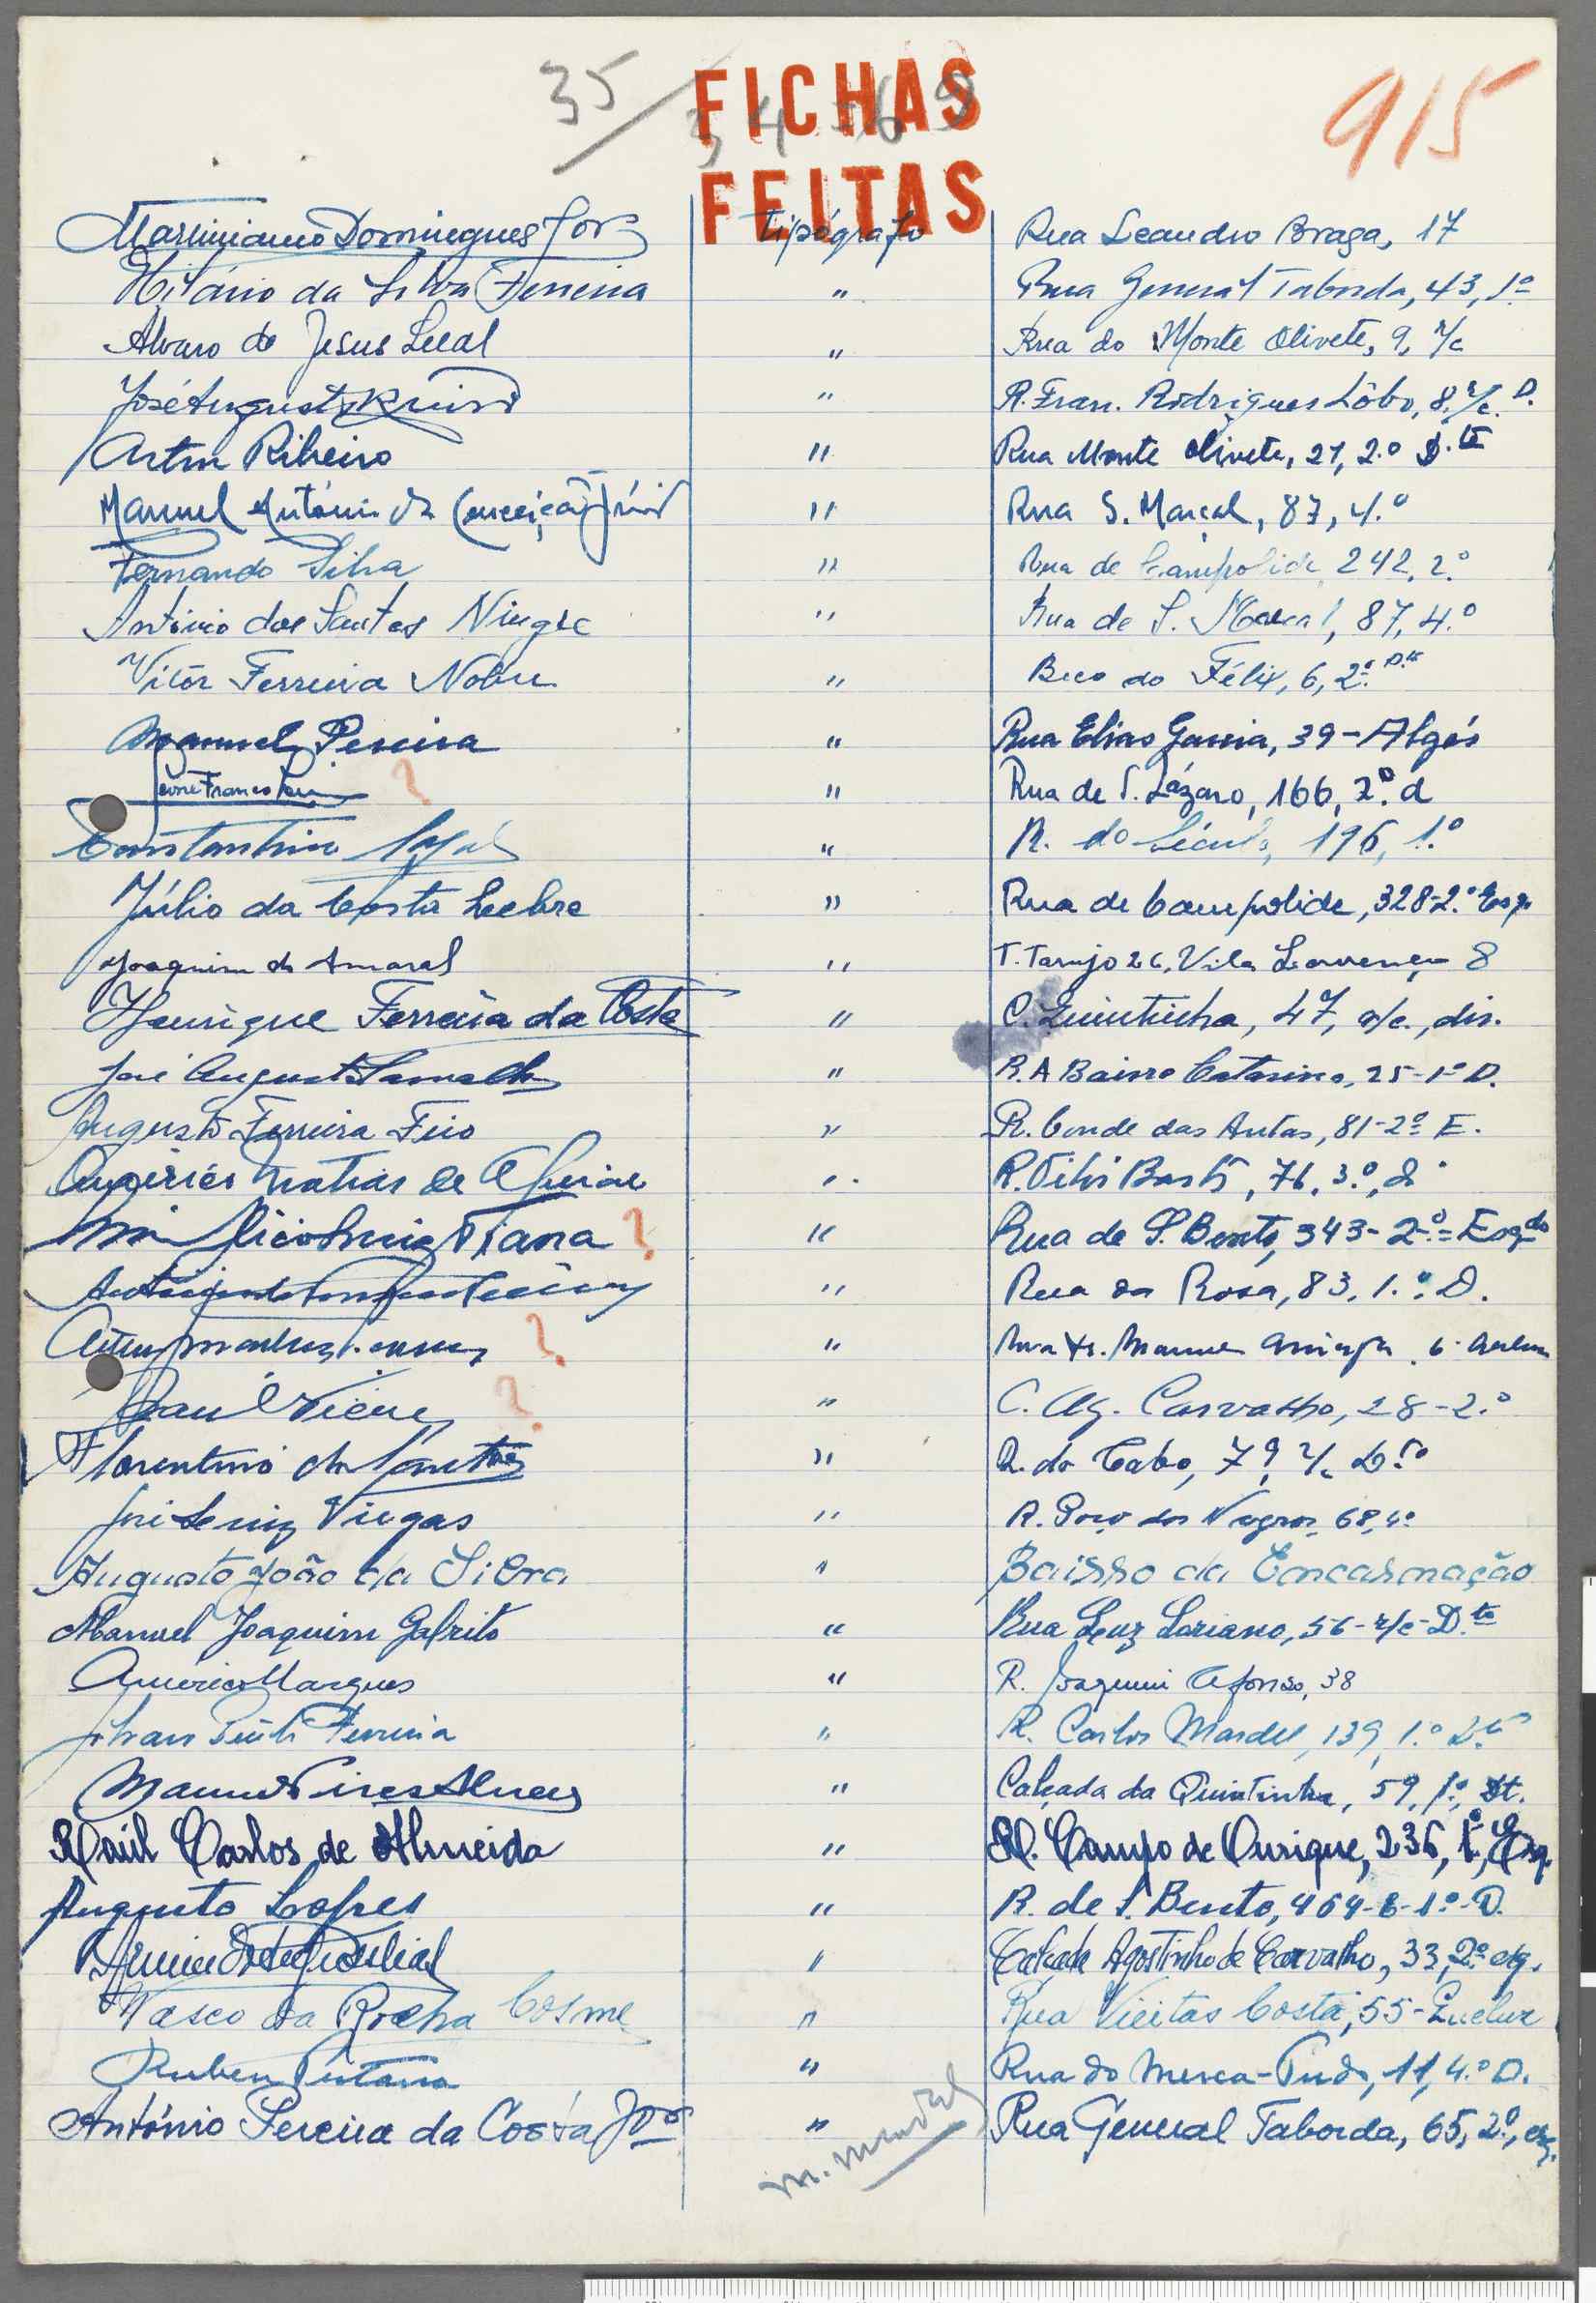 35
3, 4 - 69
FICHAS
FEITAS
915
Martiniano Domingues Jor tipógrafo Rua Leandro Braga, 17
Hilário da Silva Ferreira " Rua General Taborda, 43, 1º
Álvaro de Jesus Leal " Rua do Monte Olivete, 9, r/c
José Augusto " R. Fran. Rodrigues Lôbo, 8, r/c. D.
Artur Ribeiro " Rua Monte Olivete, 21, 2.º D.to
Manuel António da Conceição Júnior " Rua S. Marçal, 87, 4.º
Fernando Silva " Rua de Campolide 242, 2.º
António dos Santos " Rua de S. Marçal, 87, 4.º
Vitór Ferreira Nobre " Beco do Félix, 6, 2.º D.to
Manuel Pereira " Rua Elias Garcia, 39 - Algés
Franco ? " Rua de S. Lázaro, 166, 2.º d
Constantino " R. do Século, 196, 1.º
Júlio da Costa Lebre " Rua de Campolide, 328-2.º Esq.
Joaquim do Amaral " T. Tarujo 26, Vila Lourenço 8
Henrique Ferreira da Costa " C. Quintinha, 47, r/c., dir.
José Augusto " R. A Bairro Catarino, 25-1º D.
Augusto Ferreira Feio " R. Conde das Antas, 81-2º E.
Matias de " R. Basto, 76, 3.º, d.
Viana ? " Rua de S. Bento, 343-2.º= Esqdo
" Rua da Rosa, 83, 1.º D.
? " Rua Dr. Manuel Arriaga, 6
Raul ? " C. Ag. Carvalho, 28-2.º
Florentino dos Santos " R. do Cabo, 79, r/c D.to
José Luiz Viegas " R. Poço dos Negros, 68, 4º
Augusto João da Silva " Bairro da Encarnação
Manuel Joaquim Galrito " Rua Luz Soriano, 56-r/c-D.to
Américo Marques " R. Joaquim Afonso, 38
Ferreira " R. Carlos Mardel, 139, 1.º D.to
Manuel Pires Alves " Calçada da Quintinha, 59, 1.º, Dt.
Raúl Carlos de Almeida " R. Campo de Ourique, 236, 1.º, Esq.
Augusto Lopes " R. de S. Bento, 464-B-1º-D.
" Calçada Agostinho de Carvalho, 33, 2.º esq.
Vasco da Rocha Cosme " Rua Vieitas Costa, 55-Queluz
Ruben Pistana " Rua do Merca-Tudo, 11, 4.º D.
António Pereira da Costa Jor " Rua General Taborda, 65, 2.º, esq.